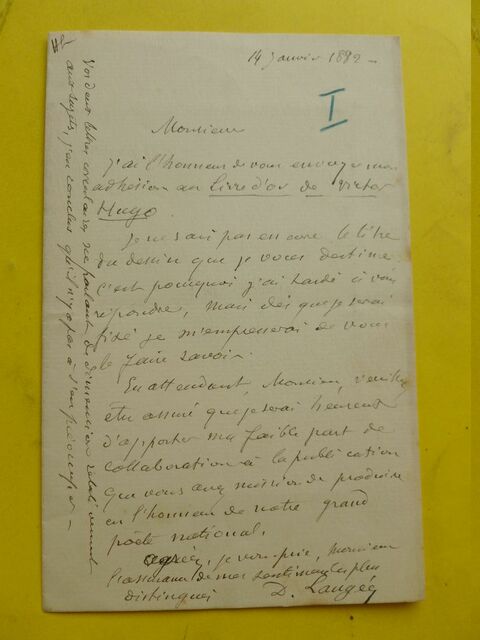 14 Janvier 1882 –
I
Monsieur
J'ai l'honneur de vous envoyer mon
adhésion au Livre d'or de Victor
Hugo.
Je ne sais pas encore le titre
du dessin que je vous destine
c'est pourquoi j'ai tardé à vous
répondre, mais dès que je serai
fixé je m'empresserai de vous
le faire savoir.
En attendant, Monsieur, veuillez
être assuré que je serai heureux
d'apporter ma faible part de
collaboration à la publication
que vous avez mission de produire
en l'honneur de notre grand
poète national.
Agréez, je vous prie, Monsieur
l'assurance de mes sentiments les plus
distingués D. Laugée
Vos deux lettres circulaires ne parlant de dimensions relativement
aux sujets, j'en conclus qu'il n'y a pas à s'en préoccuper –